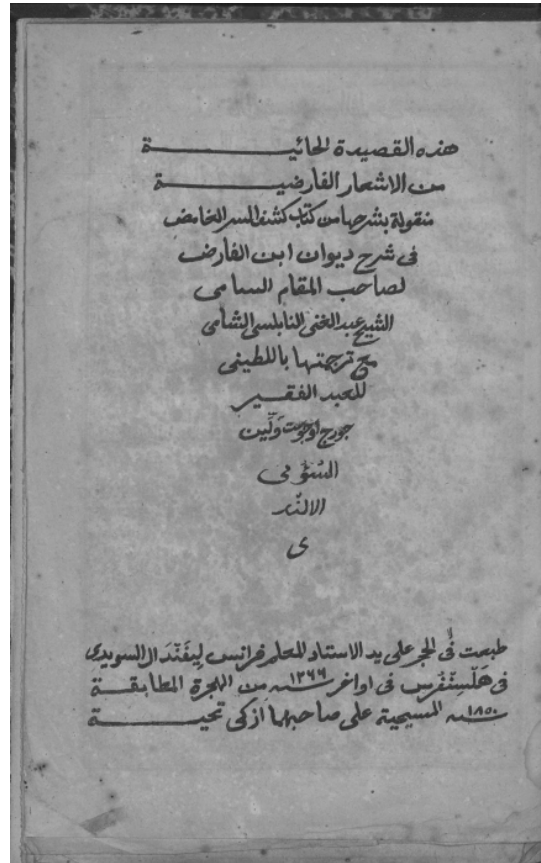 هذه القصيدة الحائيـــــة
من الاشعار الفارضيـــــة
منقولة بشرحها من كتاب كشف السر الغامض
فى شرح ديوان ابن الفارض
لصاحب المقام السامى
الشيخ عبد الغنى النابلسى الشامى
مع ترجمتها باللطينى
للعبد الفقـــير
جورج اوجوست وَلّين
الالَند
ى
طبعت فى الحجر على يد الاستاد المعلم فرانس لِيفَنْدَال السويدى
فى هَلْسِنْفُرس فى اواخر سنة ١٢٦٦ من الهجرة المطابقـــة
سنة ١٨٥٠ المسيحية على صاحبها ازكى تحيـــة